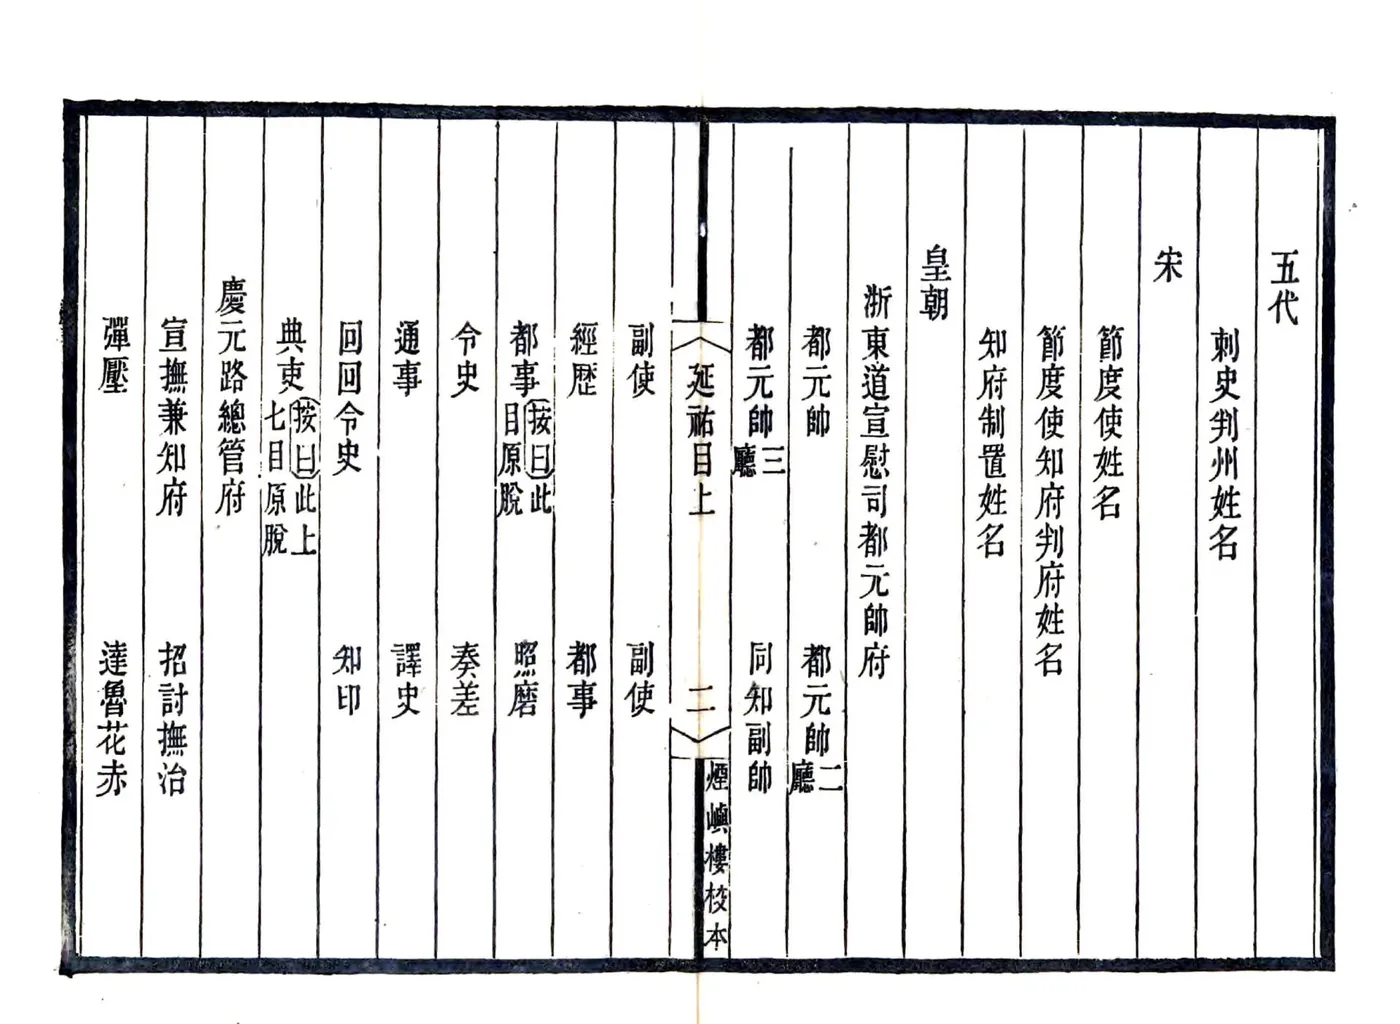 五代
刺史判州姓名
宋
節度使姓名
節度使知府判府姓名
知府制置姓名
皇朝
浙東道宣慰司都元帥府
都元帥　都元帥二廳
都元帥三廳　同知副帥
延祐目上　二　煙嶼樓校本
副使　副使
經歷　都事
都事按曰此目原脫　照磨
令史　奏差
通事　譯史
回回令史　知印
典吏按曰此上七目原脫
慶元路總管府
宣撫兼知府　招討撫治
彈壓　達魯花赤